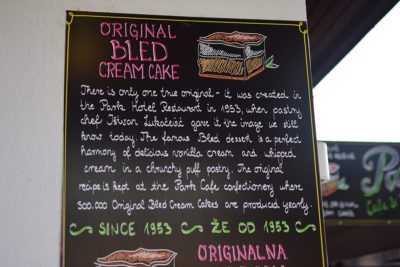 ORIGINAL
BLED
CREAM CAKE
There is only one true original - it was created in
the Park Hotel Restaurant in 1953, when pastry
chef Ištvan Lukačević gave it the image we still
know today. The famous Bled dessert is a perfect
harmony of delicious vanilla cream and whipped
cream in a chrunchy puff pastry. The original
recipe is kept at the Park Cafe confectionery where
500.000 Original Bled Cream Cakes are produced yearly.
~ SINCE 1953 ~ ŽE OD 1953 ~
ORIGINALNA